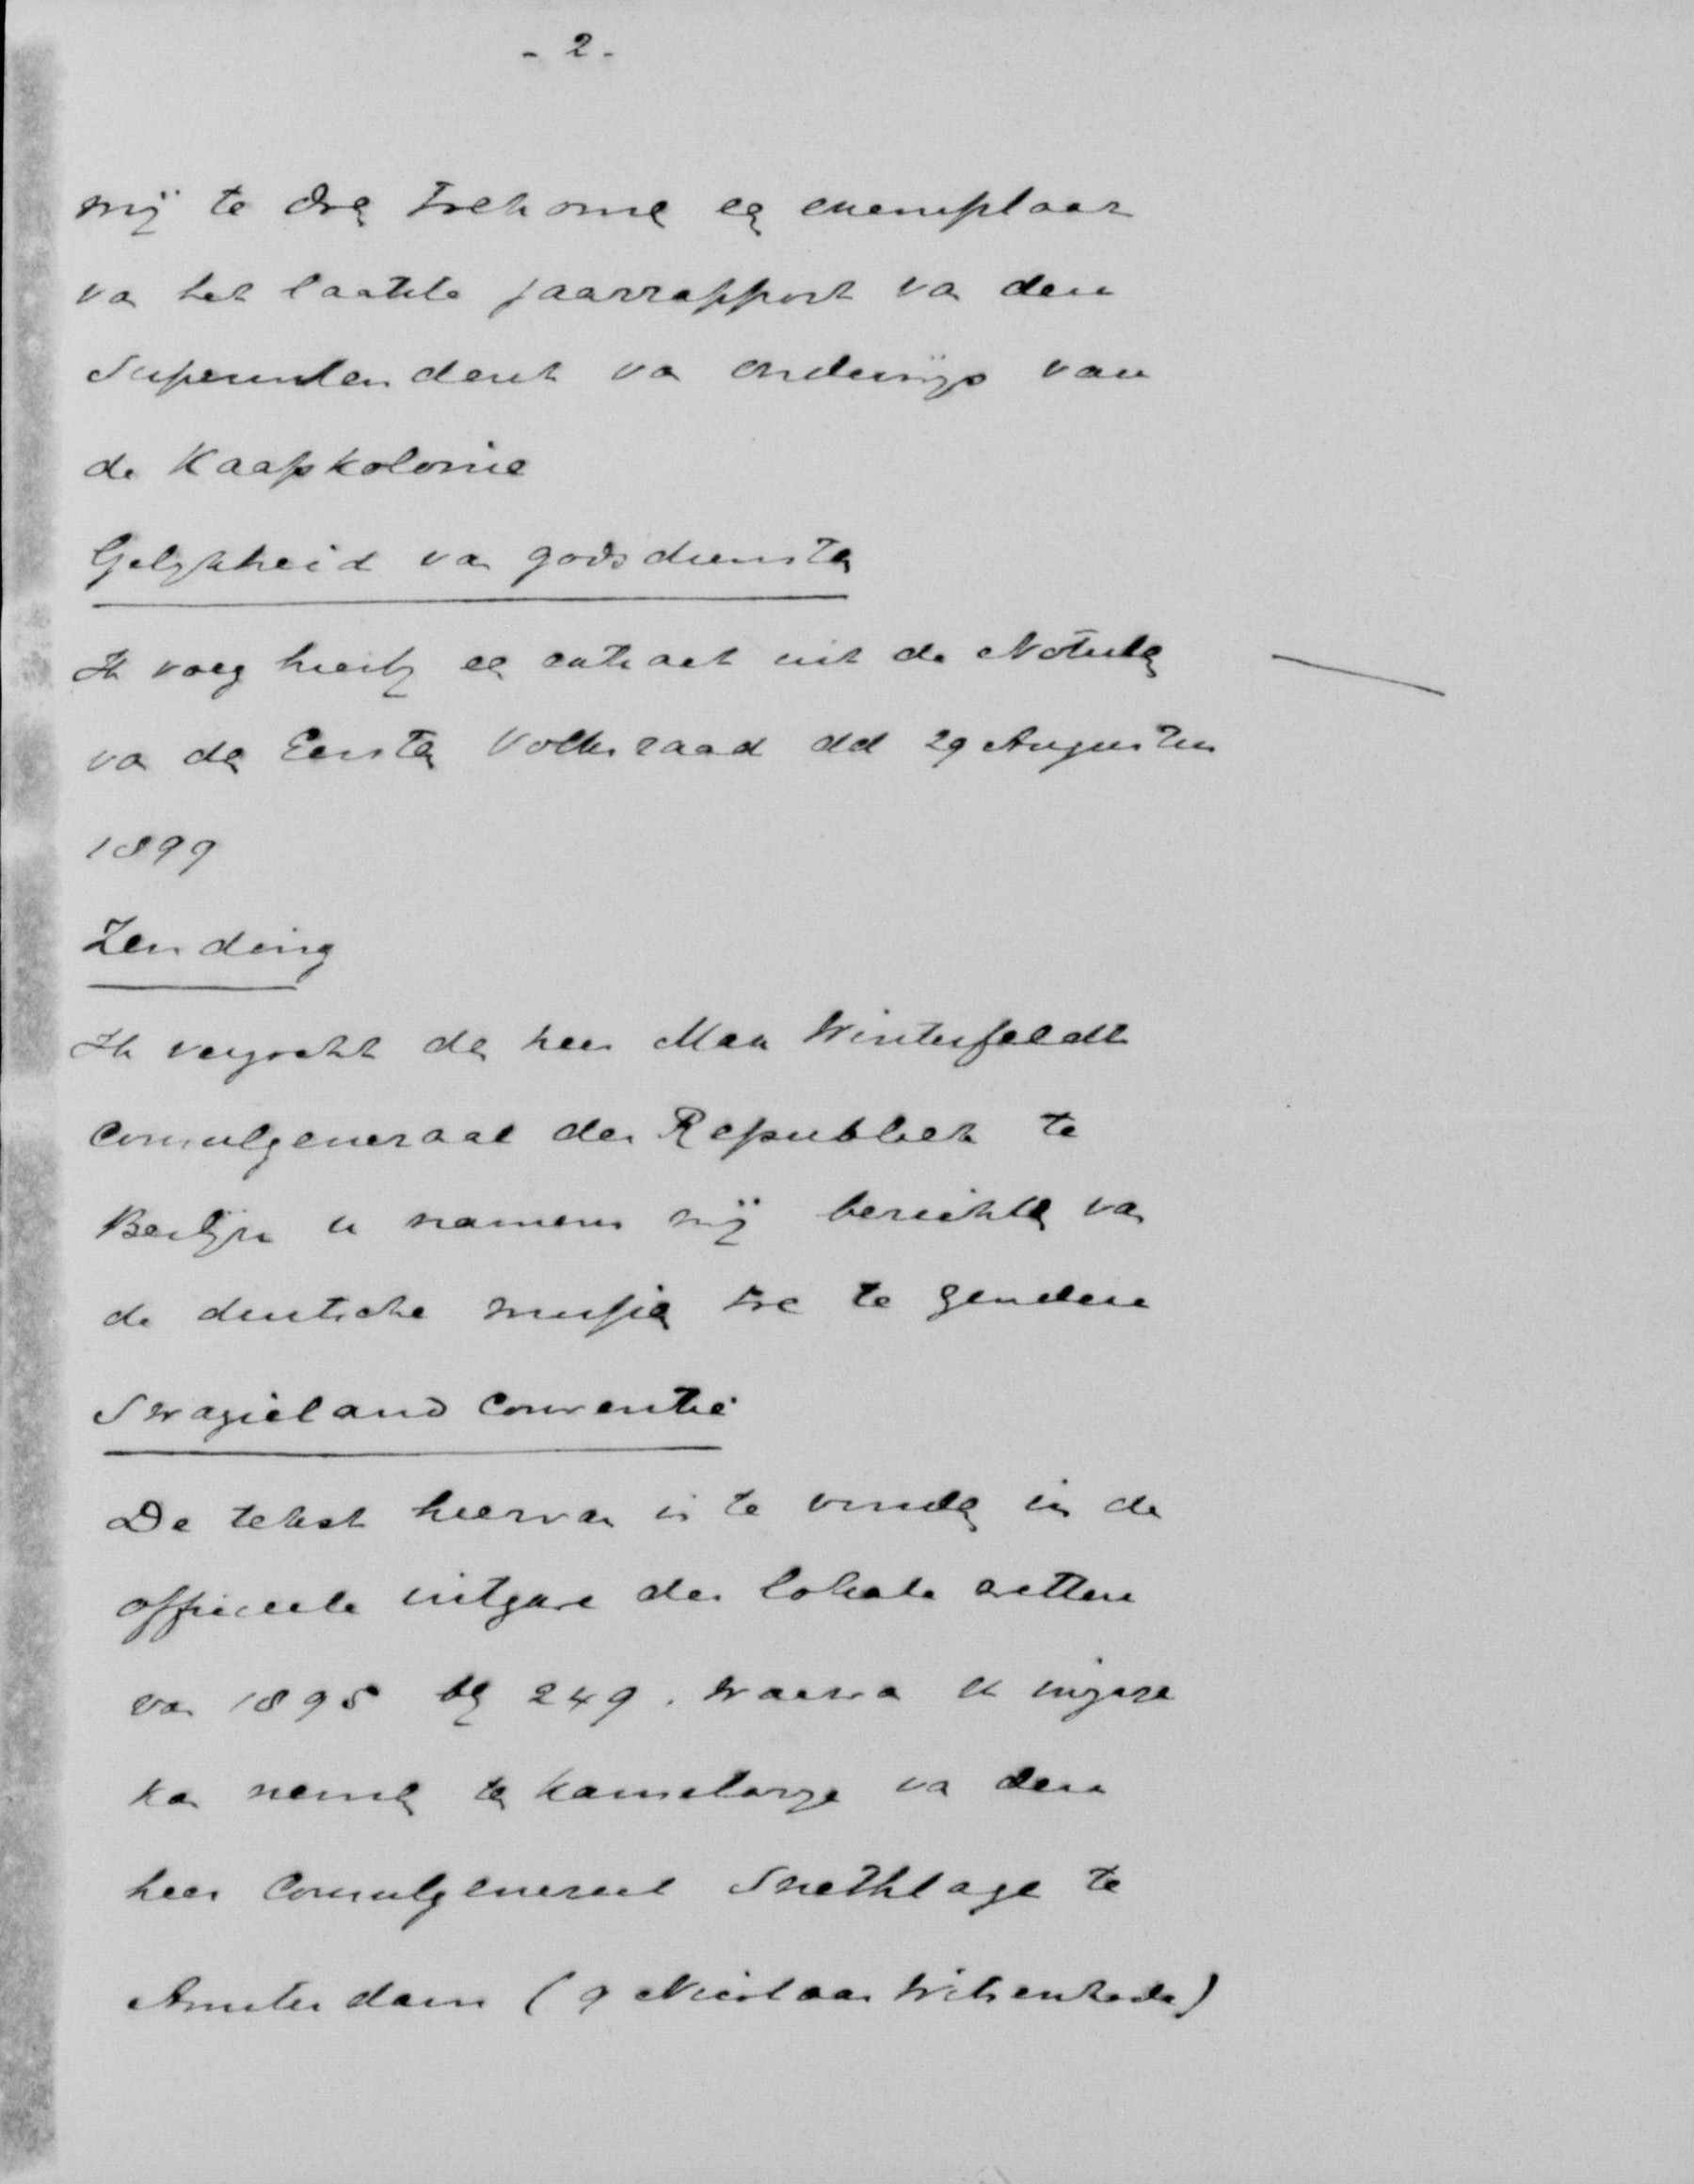 - 2 -
mij te doen toekomen een exemplaar
van het laatste jaarrapport van den
Superintendent van onderwijs van
de Kaapkolonie
Gelijkheid van godsdiensten
Ik voeg hierbij een extract uit de Notulen
van den Eersten Volksraad dd 29 Augustus
1899
Zending
Ik verzocht den heer Max Winterfeldt
Consulgeneraal der Republiek te
Berlijn u namens mij berichten van
de deutsche missien toe te zenden
Swazieland Conventie
De tekst hiervan is te vinden in de
officieele uitgave der lokale wetten
van 1895 blz 249. waarva u inzage
kan nemen ten kanselarije van den
heer Consulgeneraal Snethlage te
Amsterdam (9 Nicolaas Witsenkade)